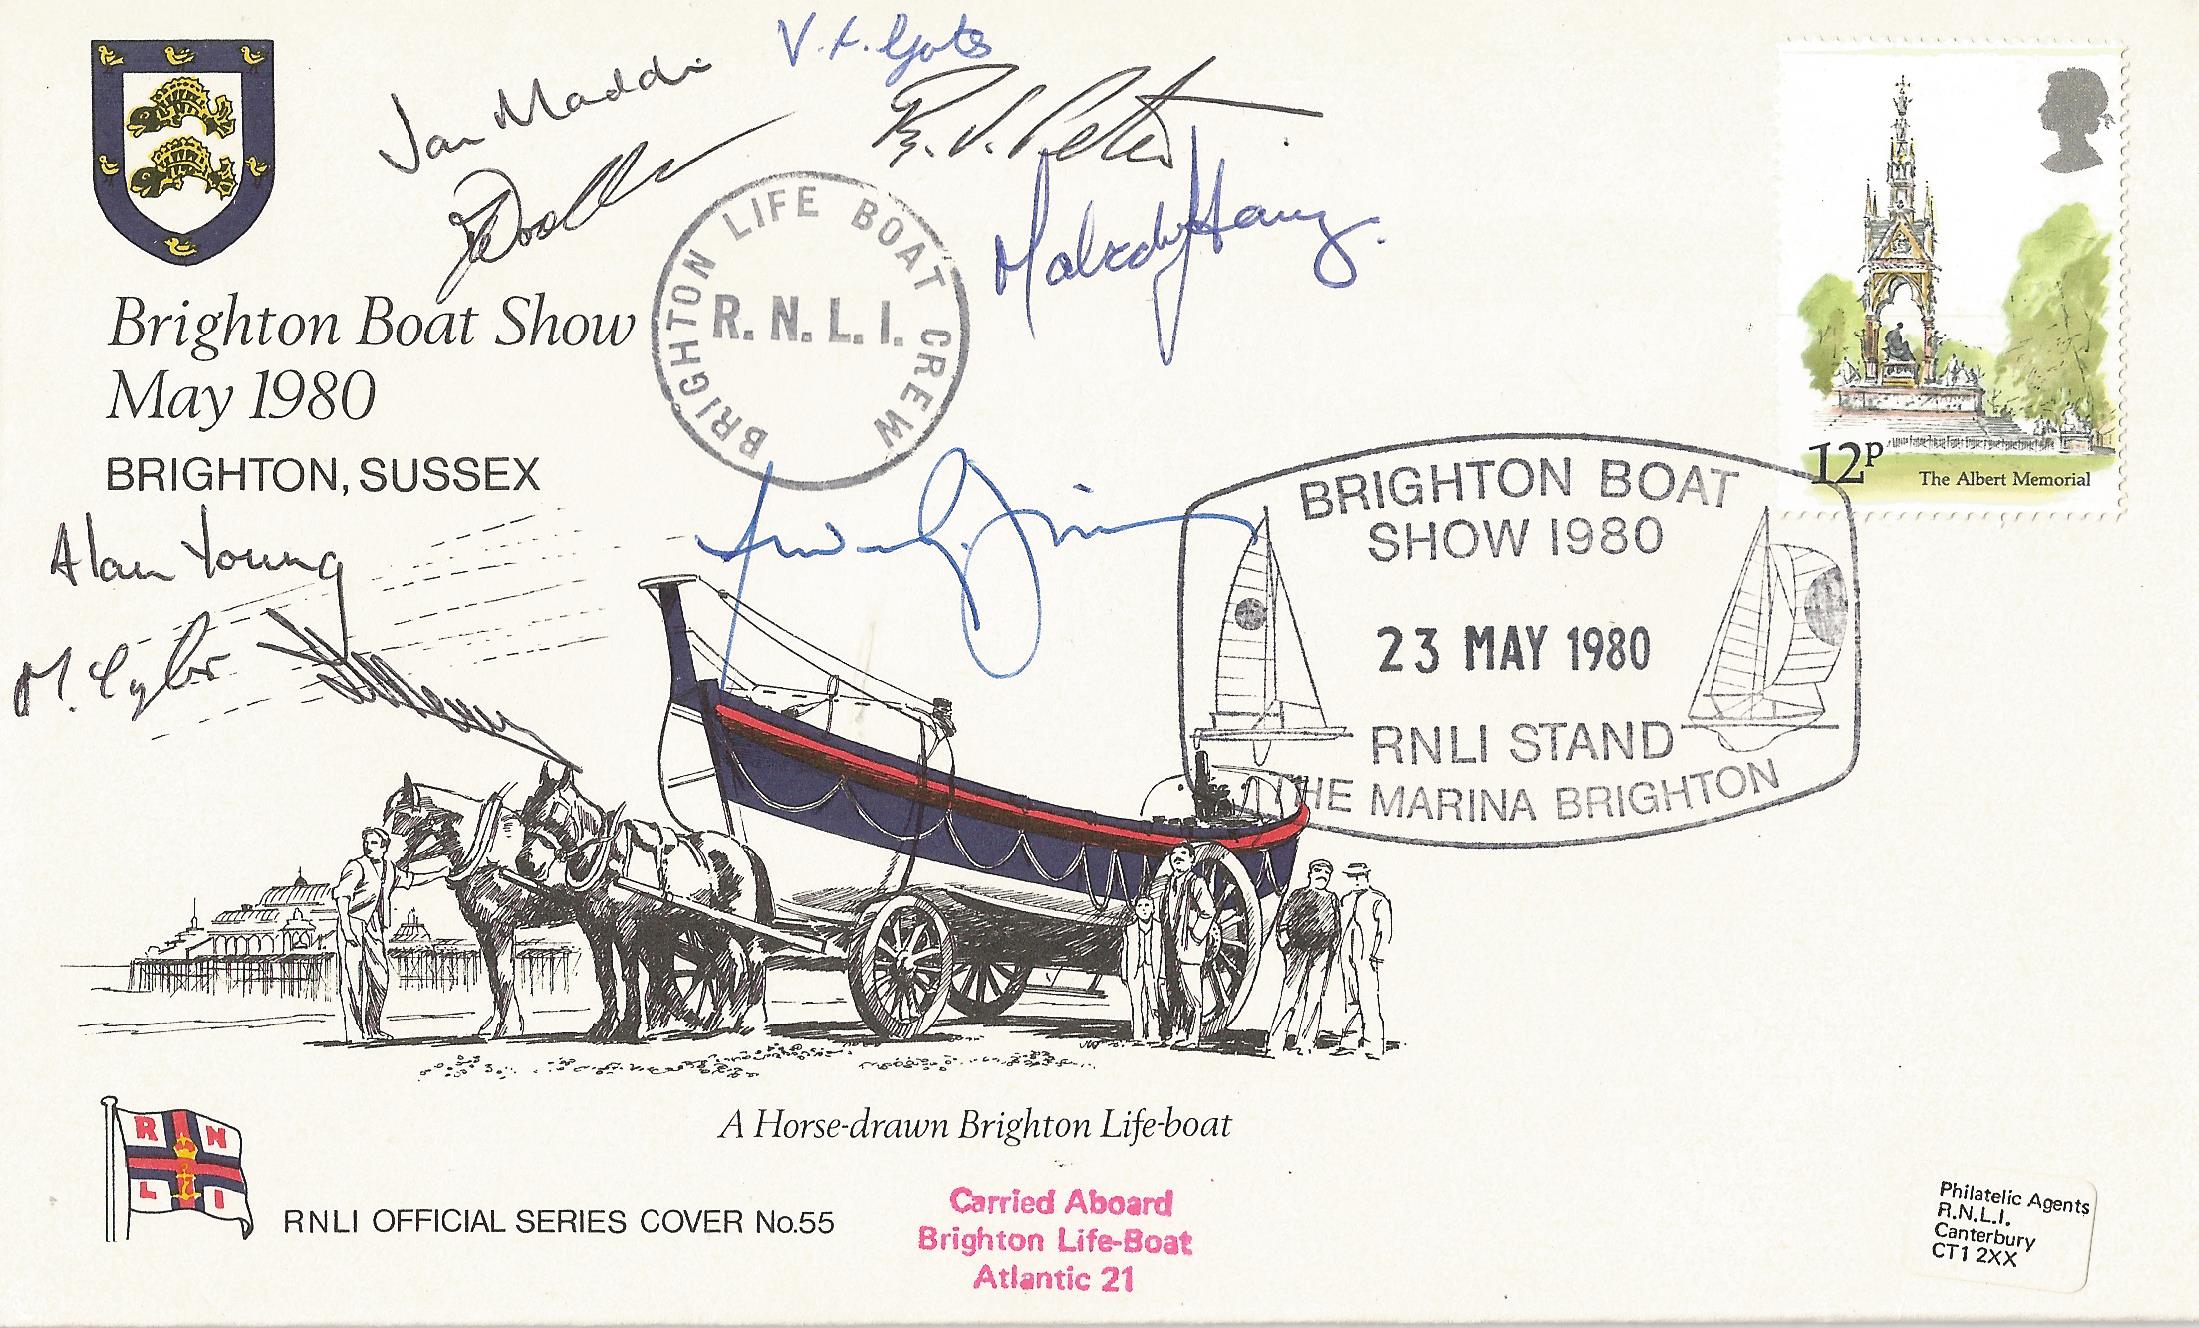 V. A. Gots
Alan Young
BRIGHTON LIFE BOAT CREW
R. N. L. I.
Brighton Boat Show
May 1980
BRIGHTON, SUSSEX
12P
The Albert Memorial
BRIGHTON BOAT
SHOW 1980
23 MAY 1980
RNLI STAND
THE MARINA BRIGHTON
A Horse-drawn Brighton Life-boat
R N
L I
RNLI OFFICIAL SERIES COVER No.55
Carried Aboard
Brighton Life-Boat
Atlantic 21
Philatelic Agents
R.N.L.I.
Canterbury
CT1 2XX